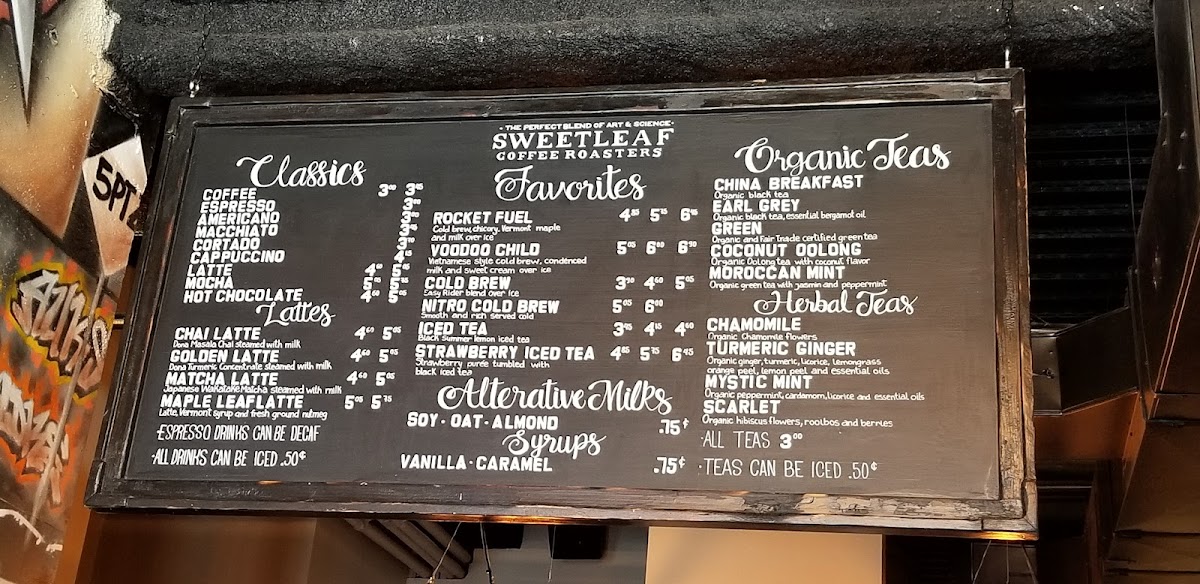 5PT
- THE PERFECT BLEND OF ART & SCIENCE -
SWEETLEAF
COFFEE ROASTERS
Classics
COFFEE 3⁰⁰
ESPRESSO
AMERICANO
MACCHIATO
CORTADO
CAPPUCCINO
LATTE
MOCHA
HOT CHOCOLATE
Lattes
CHAI LATTE 4⁶⁰ 5⁰⁵
Dona Masala Chai steamed with milk
GOLDEN LATTE 4⁶⁰ 5⁰⁵
Dona Turmeric Concentrate steamed with milk
MATCHA LATTE 4⁶⁰ 5⁰⁵
Japanese Wakatake Matcha steamed with milk
MAPLE LEAF LATTE 5⁰⁵
Latte, Vermont syrup and fresh ground nutmeg
·ESPRESSO DRINKS CAN BE DECAF
·ALL DRINKS CAN BE ICED .50¢
Favorites
ROCKET FUEL
Cold brew, chicory, Vermont maple
and milk over ice
VOODOO CHILD
Vietnamese style cold brew, condenced
milk and sweet cream over ice
COLD BREW
Easy Rider blend over ice
NITRO COLD BREW 5⁰⁵ 6⁰⁰
Smooth and rich served cold
ICED TEA
Black Summer lemon iced tea
STRAWBERRY ICED TEA
Strawberry purée tumbled with
black iced tea
Alterative Milks
SOY · OAT · ALMOND .75¢
Syrups
VANILLA · CARAMEL .75¢
Organic Teas
CHINA BREAKFAST
Organic black tea
EARL GREY
Organic black tea, essential bergamot oil
GREEN
Organic and Fair Trade certified green tea
COCONUT OOLONG
Organic Oolong tea with coconut flavor
MOROCCAN MINT
Organic green tea with jasmin and peppermint
Herbal Teas
CHAMOMILE
Organic Chamomile flowers
TURMERIC GINGER
Organic ginger, turmeric, licorice, lemongrass
orange peel, lemon peel and essential oils
MYSTIC MINT
Organic peppermint, cardamom, licorice and essential oils
SCARLET
Organic hibiscus flowers, rooibos and berries
·ALL TEAS 3⁰⁰
·TEAS CAN BE ICED .50¢